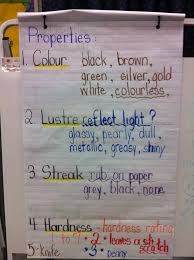 Properties:
1. Colour black, brown,
green, silver, gold
white, colourless,
2. Lustre reflect light?
glassy, pearly, dull,
metallic, greasy, shiny
3. Streak rub on paper
grey, black, none
4 Hardness - hardness rating
to 9 • 2 • leaves a scratch
5 - knife • 3 • penny